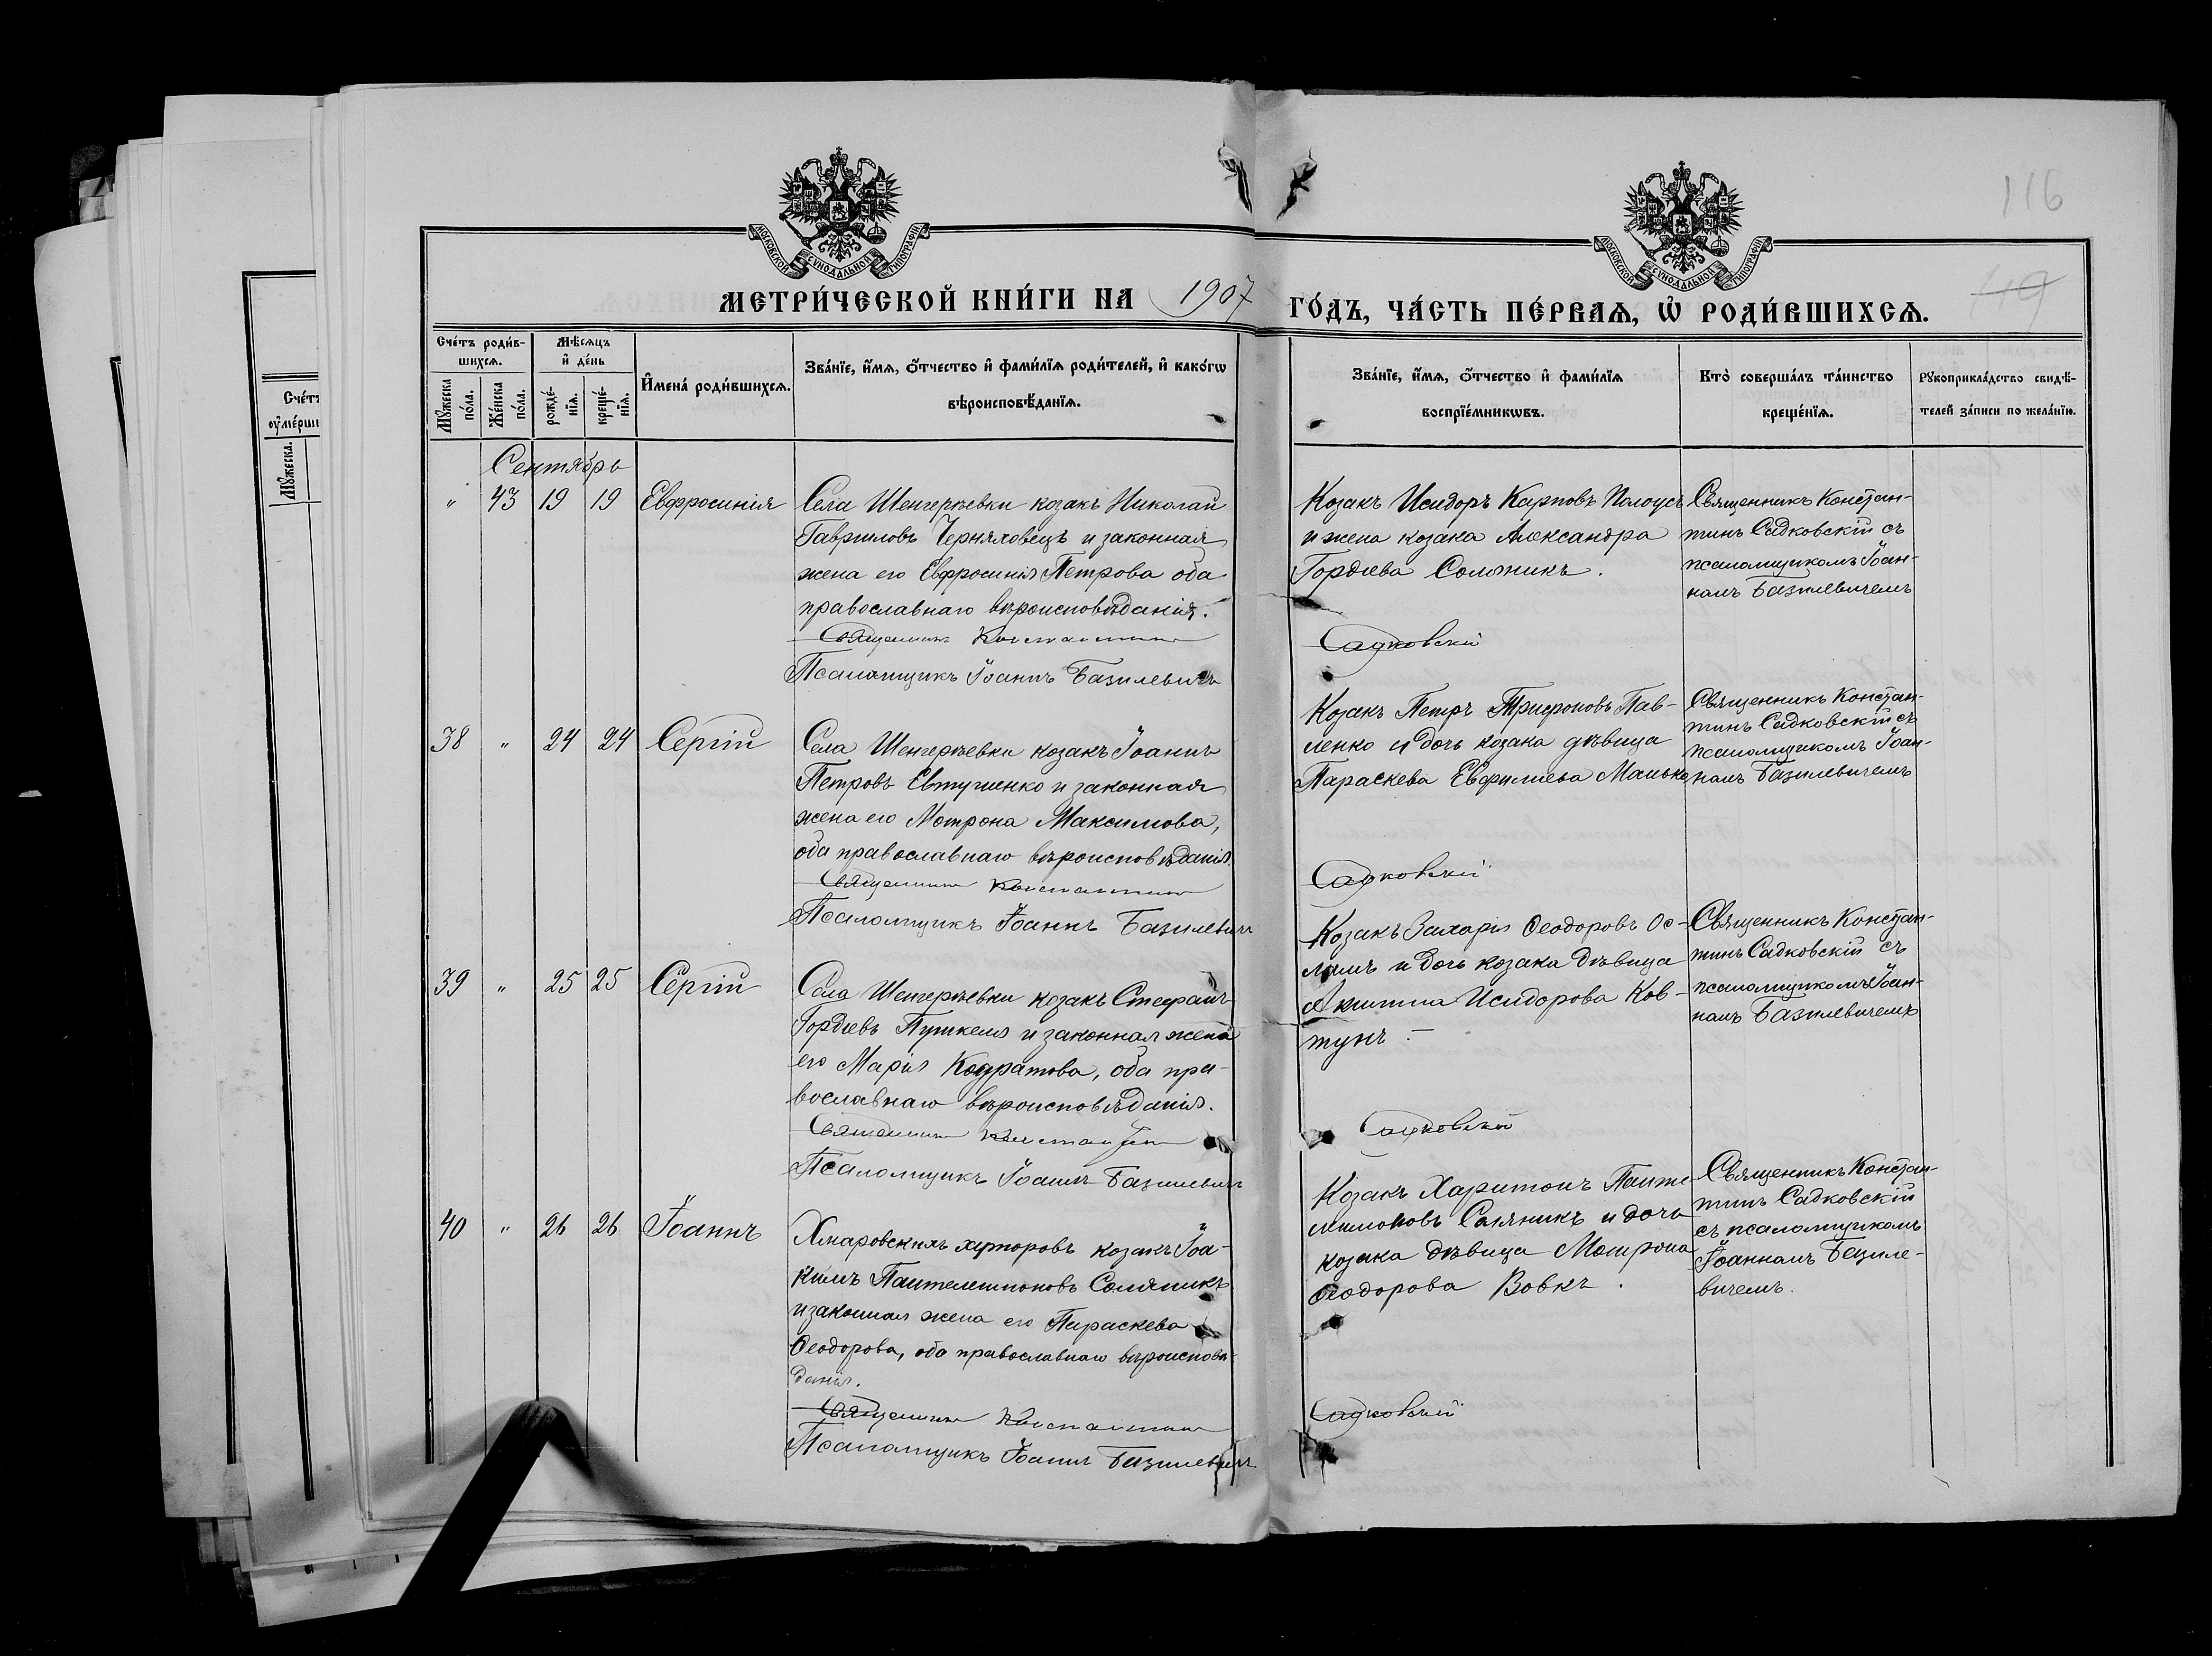 116
МОСКОВСКОЙ СѴНОДАЛЬНОЙ ТИПОГРАФІИ
МОСКОВСКОЙ СѴНОДАЛЬНОЙ ТИПОГРАФІИ
МЕТРИ́ЧЕСКОЙ КНИ́ГИ НА 1907 ГО́ДЪ, ЧА́СТЬ ПЕ́РВАѦ, Ѡ҆ РОДИ́ВШИХСѦ.
Сче́тъ роди́в-
шихсѧ.
Мꙋ́жеска по́ла.
Же́нска по́ла.
Мѣ́сѧцъ
и҆ де́нь
рожде́-
нїѧ.
креще́-
нїѧ.
И҆мена̀ роди́вшихсѧ.
Зва́нїе, и҆́мѧ, ѻ҆́тчество и҆ фами́лїѧ роди́телей, и҆ како́гѡ
вѣроисповѣ́данїѧ.
Зва́нїе, и҆́мѧ, ѻ҆́тчество и҆ фами́лїѧ
воспрїе́мникѡвъ.
Кто̀ соверша́лъ та́инство
креще́нїѧ.
Рꙋкоприкла́дство свидѣ́-
телей за́писи по жела́нїю.
Сче́тъ
Мꙋ́жеска.
Сентябрь
" 43 19 19 Евфросинія
Села Шенгерѣевки козакъ Николай
Гавриловъ Черняховецъ и законная
жена его Евфросинія Петрова оба
православнаго вѣроисповѣданія.
Священникъ Константинъ Садковскій
Псаломщикъ Іоаннъ Базилевичъ
Козакъ Исидоръ Карповъ Полоусъ
и жена козака Александра
Гордіева Соляникъ.
Священникъ Констан-
тинъ Садковскій съ
псаломщикомъ Іоан-
номъ Базилевичемъ
38 " 24 24 Сергій
Села Шенгерѣевки козакъ Іоаннъ
Петровъ Евтушенко и законная
жена его Мотрона Максимова,
оба православнаго вѣроисповѣданія.
Священникъ Константинъ Садковскій
Псаломщикъ Іоаннъ Базилевичъ
Козакъ Петръ Трифоновъ Пав-
ленко и дочь козака дѣвица
Параскева Евфимиева Манько
Священникъ Констан-
тинъ Садковскій съ
псаломщикомъ Іоан-
номъ Базилевичемъ
39 " 25 25 Сергій
Села Шенгерѣевки козакъ Стефанъ
Гордіевъ Пушкель и законная жена
его Марія Кодратова, оба пра-
вославнаго вѣроисповѣданія.
Священникъ Константинъ Садковскій
Псаломщикъ Іоаннъ Базилевичъ
Козакъ Захарія Ѳеодоровъ Ос-
и дочь козака дѣвица
Акилина Исидорова Ков-
тунъ.
Священникъ Констан-
тинъ Садковскій съ
псаломщикомъ Іоан-
номъ Базилевичемъ
40 " 26 26 Іоаннъ
Хмаровскихъ хуторовъ козакъ Іоа-
кимъ Пантелеимоновъ Соляникъ
и законная жена его Параскева
Ѳеодорова, оба православнаго вѣроисповѣ-
данія.
Священникъ Константинъ Садковскій
Псаломщикъ Іоаннъ Базилевичъ
Козакъ Харитонъ Панте-
лимоновъ Соляникъ и дочь
козака дѣвица Мотрона
Ѳеодорова Вовкъ.
Священникъ Констан-
тинъ Садковскій
съ псаломщикомъ
Іоанномъ Базиле-
вичемъ.